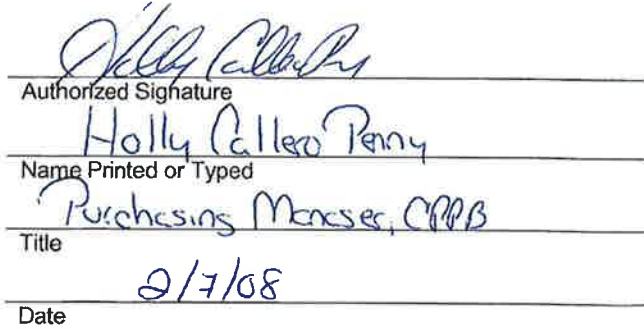 Authorized Signature
Holly Callero Penny
Name Printed or Typed
Purchasing Manager, CPPB
Title
2/7/08
Date